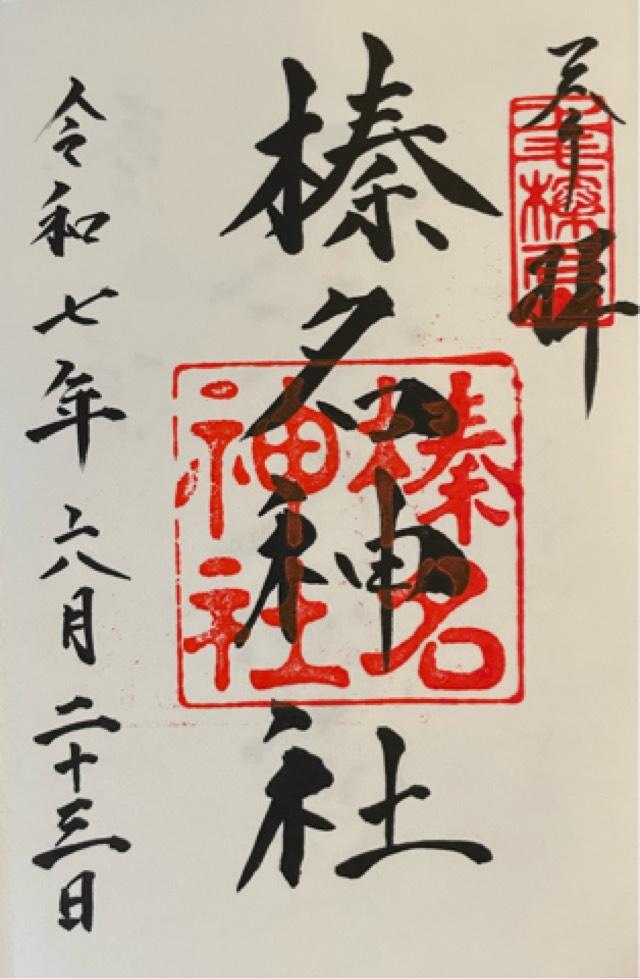 奉拝
榛名神社
榛名
神社
令和七年六月二十三日